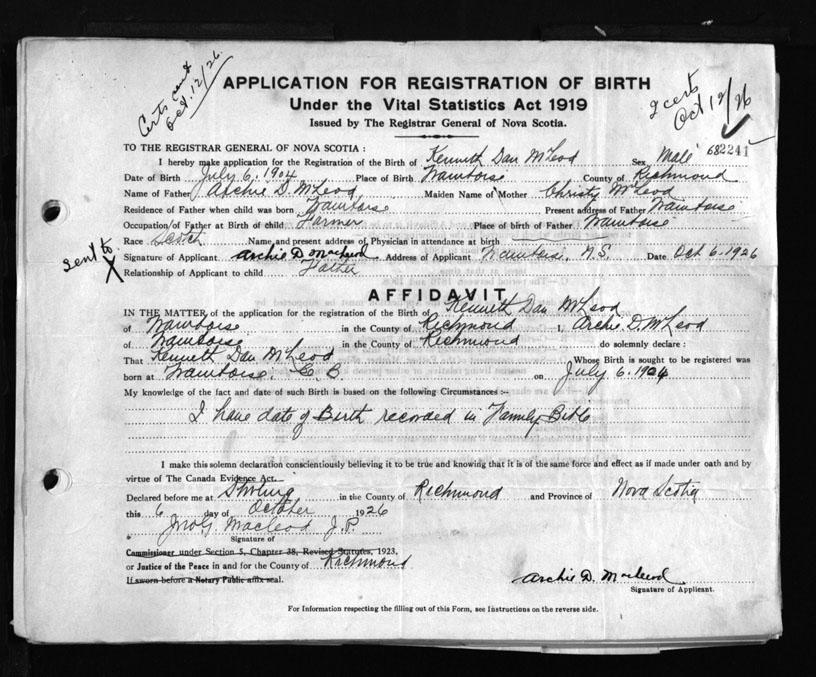 Certs sent
Oct. 12/26.
2 certs
Oct 12/26
APPLICATION FOR REGISTRATION OF BIRTH
Under the Vital Statistics Act 1919
Issued by The Registrar General of Nova Scotia.
TO THE REGISTRAR GENERAL OF NOVA SCOTIA :
682241
I hereby make application for the Registration of the Birth of Kenneth Dan McLeod Sex Male
Date of Birth July 6, 1904 Place of Birth Framboise County of Richmond
Name of Father Archie D. McLeod Maiden Name of Mother Christy McLeod
Residence of Father when child was born Framboise Present address of Father Framboise
Occupation of Father at Birth of child Farmer Place of birth of Father Framboise
Race Scotch Name and present address of Physician in attendance at birth
sent to X
Signature of Applicant Archie D Macleod Address of Applicant Framboise, N.S. Date Oct 6, 1926
Relationship of Applicant to child Father
AFFIDAVIT
IN THE MATTER of the application for the registration of the Birth of Kenneth Dan McLeod
of Framboise in the County of Richmond I, Archie D. McLeod
of Framboise in the County of Richmond do solemnly declare :
That Kenneth Dan McLeod Whose Birth is sought to be registered was
born at Framboise, C. B. on July 6, 1904
My knowledge of the fact and date of such Birth is based on the following Circumstances :-
I have date of Birth recorded in Family Bible
I make this solemn declaration conscientiously believing it to be true and knowing that it is of the same force and effect as if made under oath and by
virtue of The Canada Evidence Act.
Declared before me at Stirling in the County of Richmond and Province of Nova Scotia
this 6 day of October 1926
Jno G. Macleod J.P.
Signature of
Commissioner under Section 5, Chapter 38, Revised Statutes, 1923.
or Justice of the Peace in and for the County of Richmond
If sworn before a Notary Public affix seal.
Archie D. Macleod
Signature of Applicant.
For Information respecting the filling out of this Form, see Instructions on the reverse side.